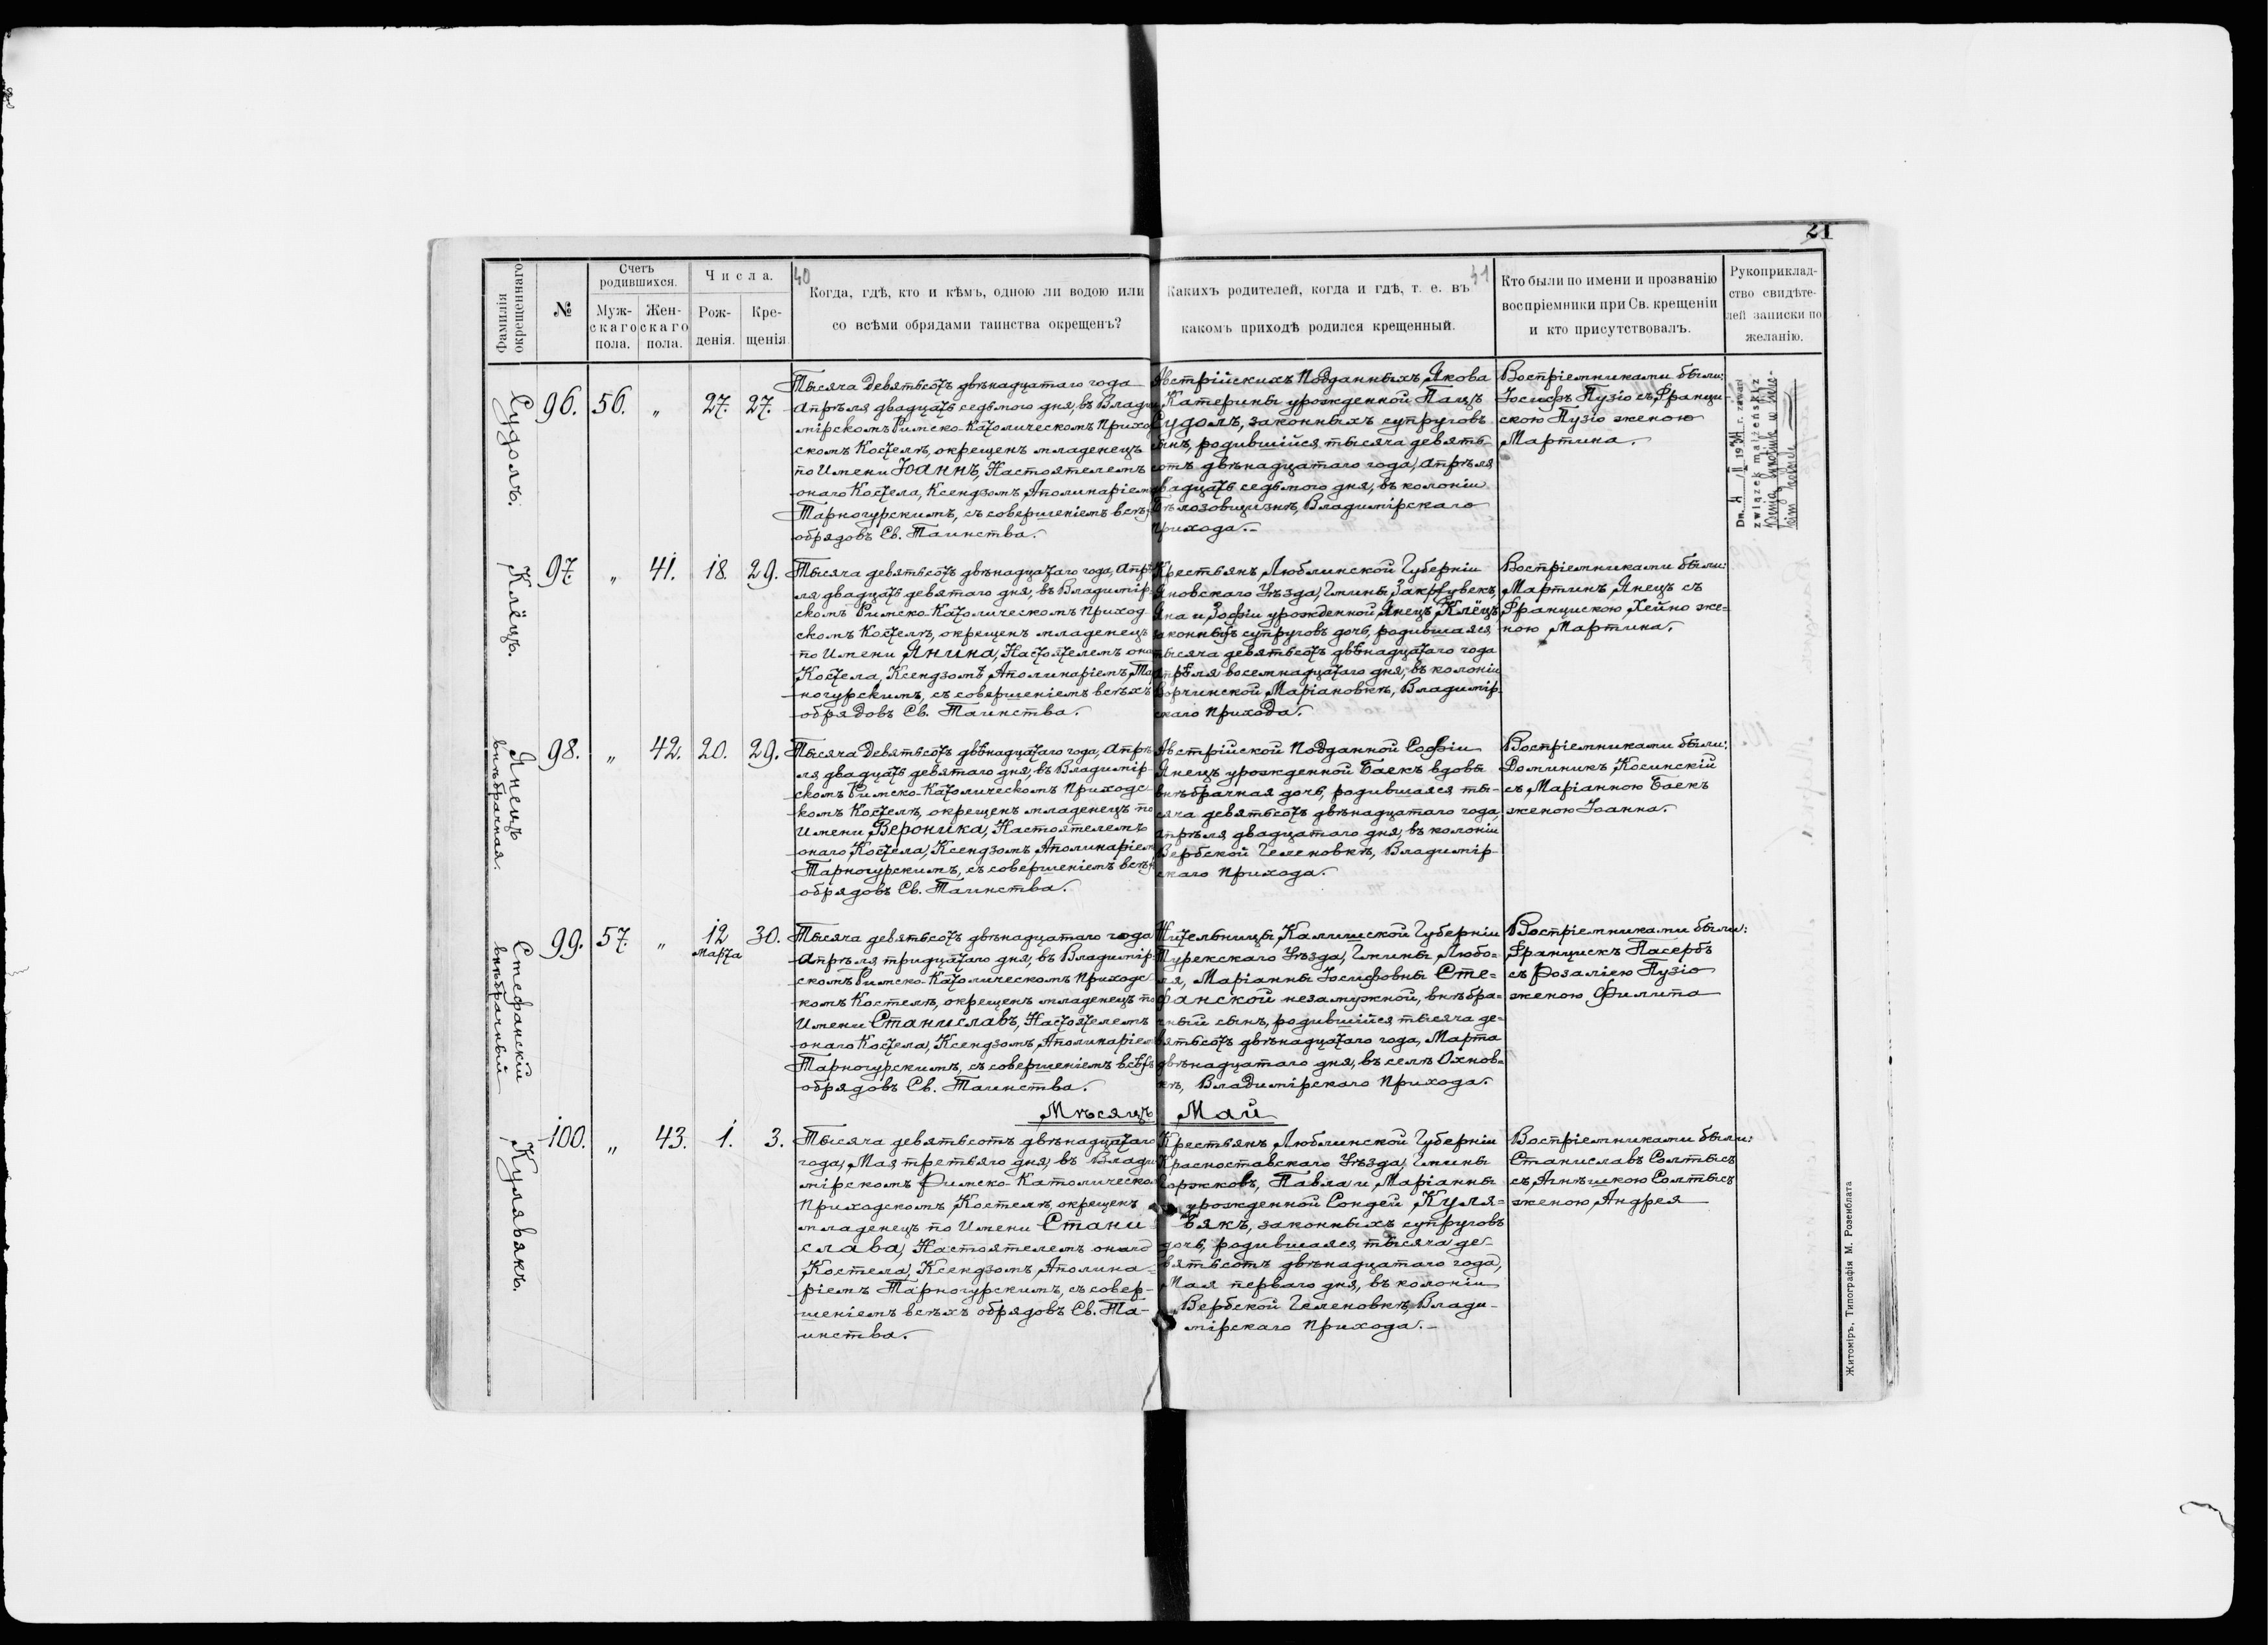 21
40
41
Фамилія окрещеннаго
№
Счетъ родившихся.
Мужскаго пола.
Женскаго пола.
Числа.
Рожденія.
Крещенія
Когда, гдѣ, кто и кѣмъ, одною ли водою или
со всѣми обрядами таинства окрещенъ?
Какихъ родителей, когда и гдѣ, т. е. въ
какомъ приходѣ родился крещенный.
Кто были по имени и прозванію
воспріемники при Св. крещеніи
и кто присутствовалъ.
Рукоприклад-
ство свидѣте-
лей записки по
желанію.
Судолъ.
96. 56. „ 27. 27.
Тысяча девятьсотъ двѣнадцатаго года
Апрѣля двадцать седьмого дня, въ Влади
мірскомъ Римско-Католическомъ Приход
скомъ Костелѣ, окрещенъ младенецъ
по Имени Іоаннъ, Настоятелемъ
онаго Костела, Ксендзомъ Аполинаріем
Тарногурскимъ, съ совершеніемъ всѣх
обрядовъ Св. Таинства.
Австрійскихъ Подданныхъ, Якова
Катерины урожденной Пацъ
Судолъ, законныхъ супруговъ
сынъ, родившійся тысяча девять-
сотъ двѣнадцатаго года, Апрѣля
двадцать седьмого дня, въ колоніи
Бѣлозовщизнѣ, Владимірскаго
Прихода.-
Воспріемниками были:
Іосифъ Пузіо съ Франци
скою Пузіо женою
Мартина.
Dn. 4 /II 19 r. zawarł
związek małżeński z
97. „ 41. 18. 29.
Клёцъ.
Тысяча девятьсотъ двѣнадцатаго года, Апрѣ
ля двадцать девятаго дня, въ Владимір-
скомъ Римско-Католическомъ Приход
скомъ Костелѣ, окрещенъ младенецъ
по Имени Янина, Настоятелемъ она
Костела, Ксендзомъ Аполинаріемъ Тар
ногурскимъ, съ совершеніемъ всѣхъ
обрядовъ Св. Таинства.
Крестьянъ Люблинской Губерніи
Яновскаго Уѣзда, Гмины Закржувекъ,
Яна и Зофіи урожденной Янецъ, Клёцъ
законныхъ супруговъ дочь, родившаяся
тысяча девятьсотъ двѣнадцатаго года
Апрѣля восемнадцатаго дня, въ колоніи
Ворчинской Маріановкѣ, Владимір-
скаго Прихода.
Воспріемниками были:
Мартинъ Янецъ съ
Францискою Хейно же-
ною Мартина.
Янецъ
внѣбрачная.
98. „ 42. 20. 29.
Тысяча девятьсотъ двѣнадцатаго года, Апрѣ
ля двадцать девятаго дня, въ Владимір-
скомъ Римско-Католическомъ Приходс-
комъ Костелѣ, окрещенъ младенецъ по
Имени Вероника, Настоятелемъ
онаго Костела, Ксендзомъ Аполинаріем
Тарногурскимъ, съ совершеніемъ всѣх
обрядовъ Св. Таинства.
Австрійской Подданной Софіи
Янецъ урожденной Баекъ вдовы
внѣбрачная дочь, родившаяся ты-
сяча девятьсотъ двѣнадцатаго года,
Апрѣля двадцатаго дня, въ колоніи
Вербской Геленовкѣ, Владимір-
скаго Прихода.
Воспріемниками были:
Доминикъ Косинскій
съ Маріанною Баекъ
женою Іоанна.
Стефанскій
внѣбрачный
99. 57. „ 12 Марта 30.
Тысяча девятьсотъ двѣнадцатаго года
Апрѣля тридцатаго дня, въ Владимір
скомъ Римско-Католическомъ Приходс
комъ Костелѣ, окрещенъ младенецъ по
Имени Станиславъ, Настоятелемъ
онаго Костела, Ксендзомъ Аполинаріем
Тарногурскимъ, съ совершеніемъ всѣхъ
обрядовъ Св. Таинства.
Жительницы Калишской Губерніи
Турекскаго Уѣзда, Гмины Любо-
ля, Маріанны Іосифовны Сте-
фанской незамужной, внѣбра-
чный сынъ, родившійся тысяча де-
вятьсотъ двѣнадцатаго года, Марта
двѣнадцатаго дня, въ селѣ Охнов-
кѣ, Владимірскаго Прихода.
Воспріемниками были:
Францискъ Пасербъ
съ Розаліею Пузіо
женою Филипа
Мѣсяцъ Май
Кулявякъ.
100. „ 43. 1. 3.
Тысяча девятьсотъ двѣнадцатаго
года, Мая третьяго дня, въ Влади
мірскомъ Римско-Католическо
Приходскомъ Костелѣ, окрещенъ
младенецъ по Имени Стани
слава, Настоятелемъ онаго
Костела, Ксендзомъ Аполина-
ріемъ Тарногурскимъ, съ совер-
шеніемъ всѣхъ обрядовъ Св. Та-
инства.
Крестьянъ Люблинской Губерніи
Красноставскаго Уѣзда, Гмины
Горжковъ, Павла и Маріанны
урожденной Сондей, Куля-
вякъ, законныхъ супруговъ
дочь, родившаяся тысяча де-
вятьсотъ двѣнадцатаго года,
Мая перваго дня, въ колоніи
Вербской Геленовкѣ, Влади-
мірскаго Прихода.-
Воспріемниками были:
Станиславъ Солтысъ
съ Агнѣшкою Солтысъ
женою Андрея
Житоміръ, Типографія М. Розенблата